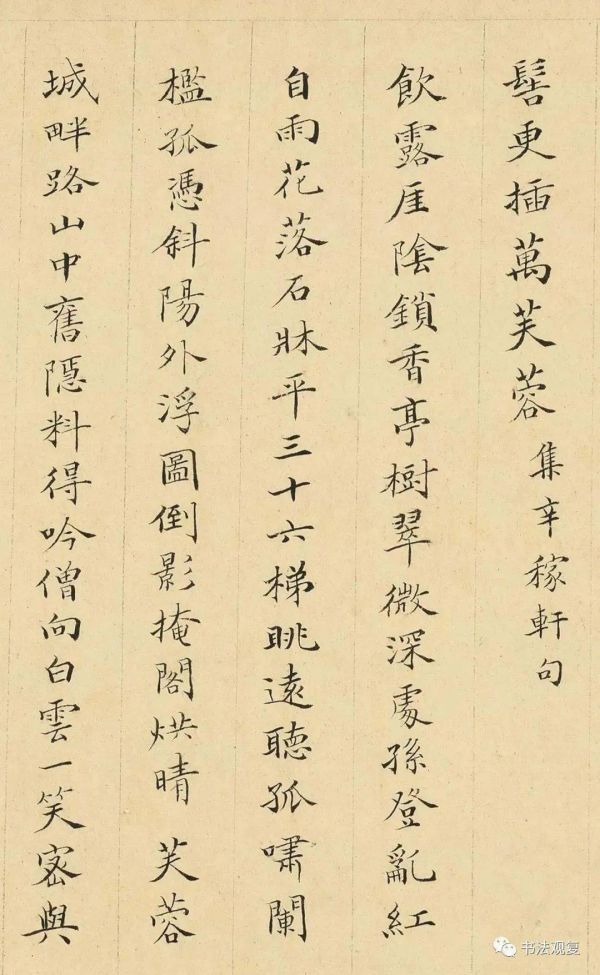 髻更插萬芙蓉 集辛稼軒句
飲露厓陰鎖香亭樹翠微深處孫登亂紅
自雨花落石牀平三十六梯眺遠聽孤嘯闌
檻孤憑斜陽外浮圖倒影掩閣烘晴 芙蓉
城畔路山中舊隱料得吟僧向白雲一笑密與
书法观复